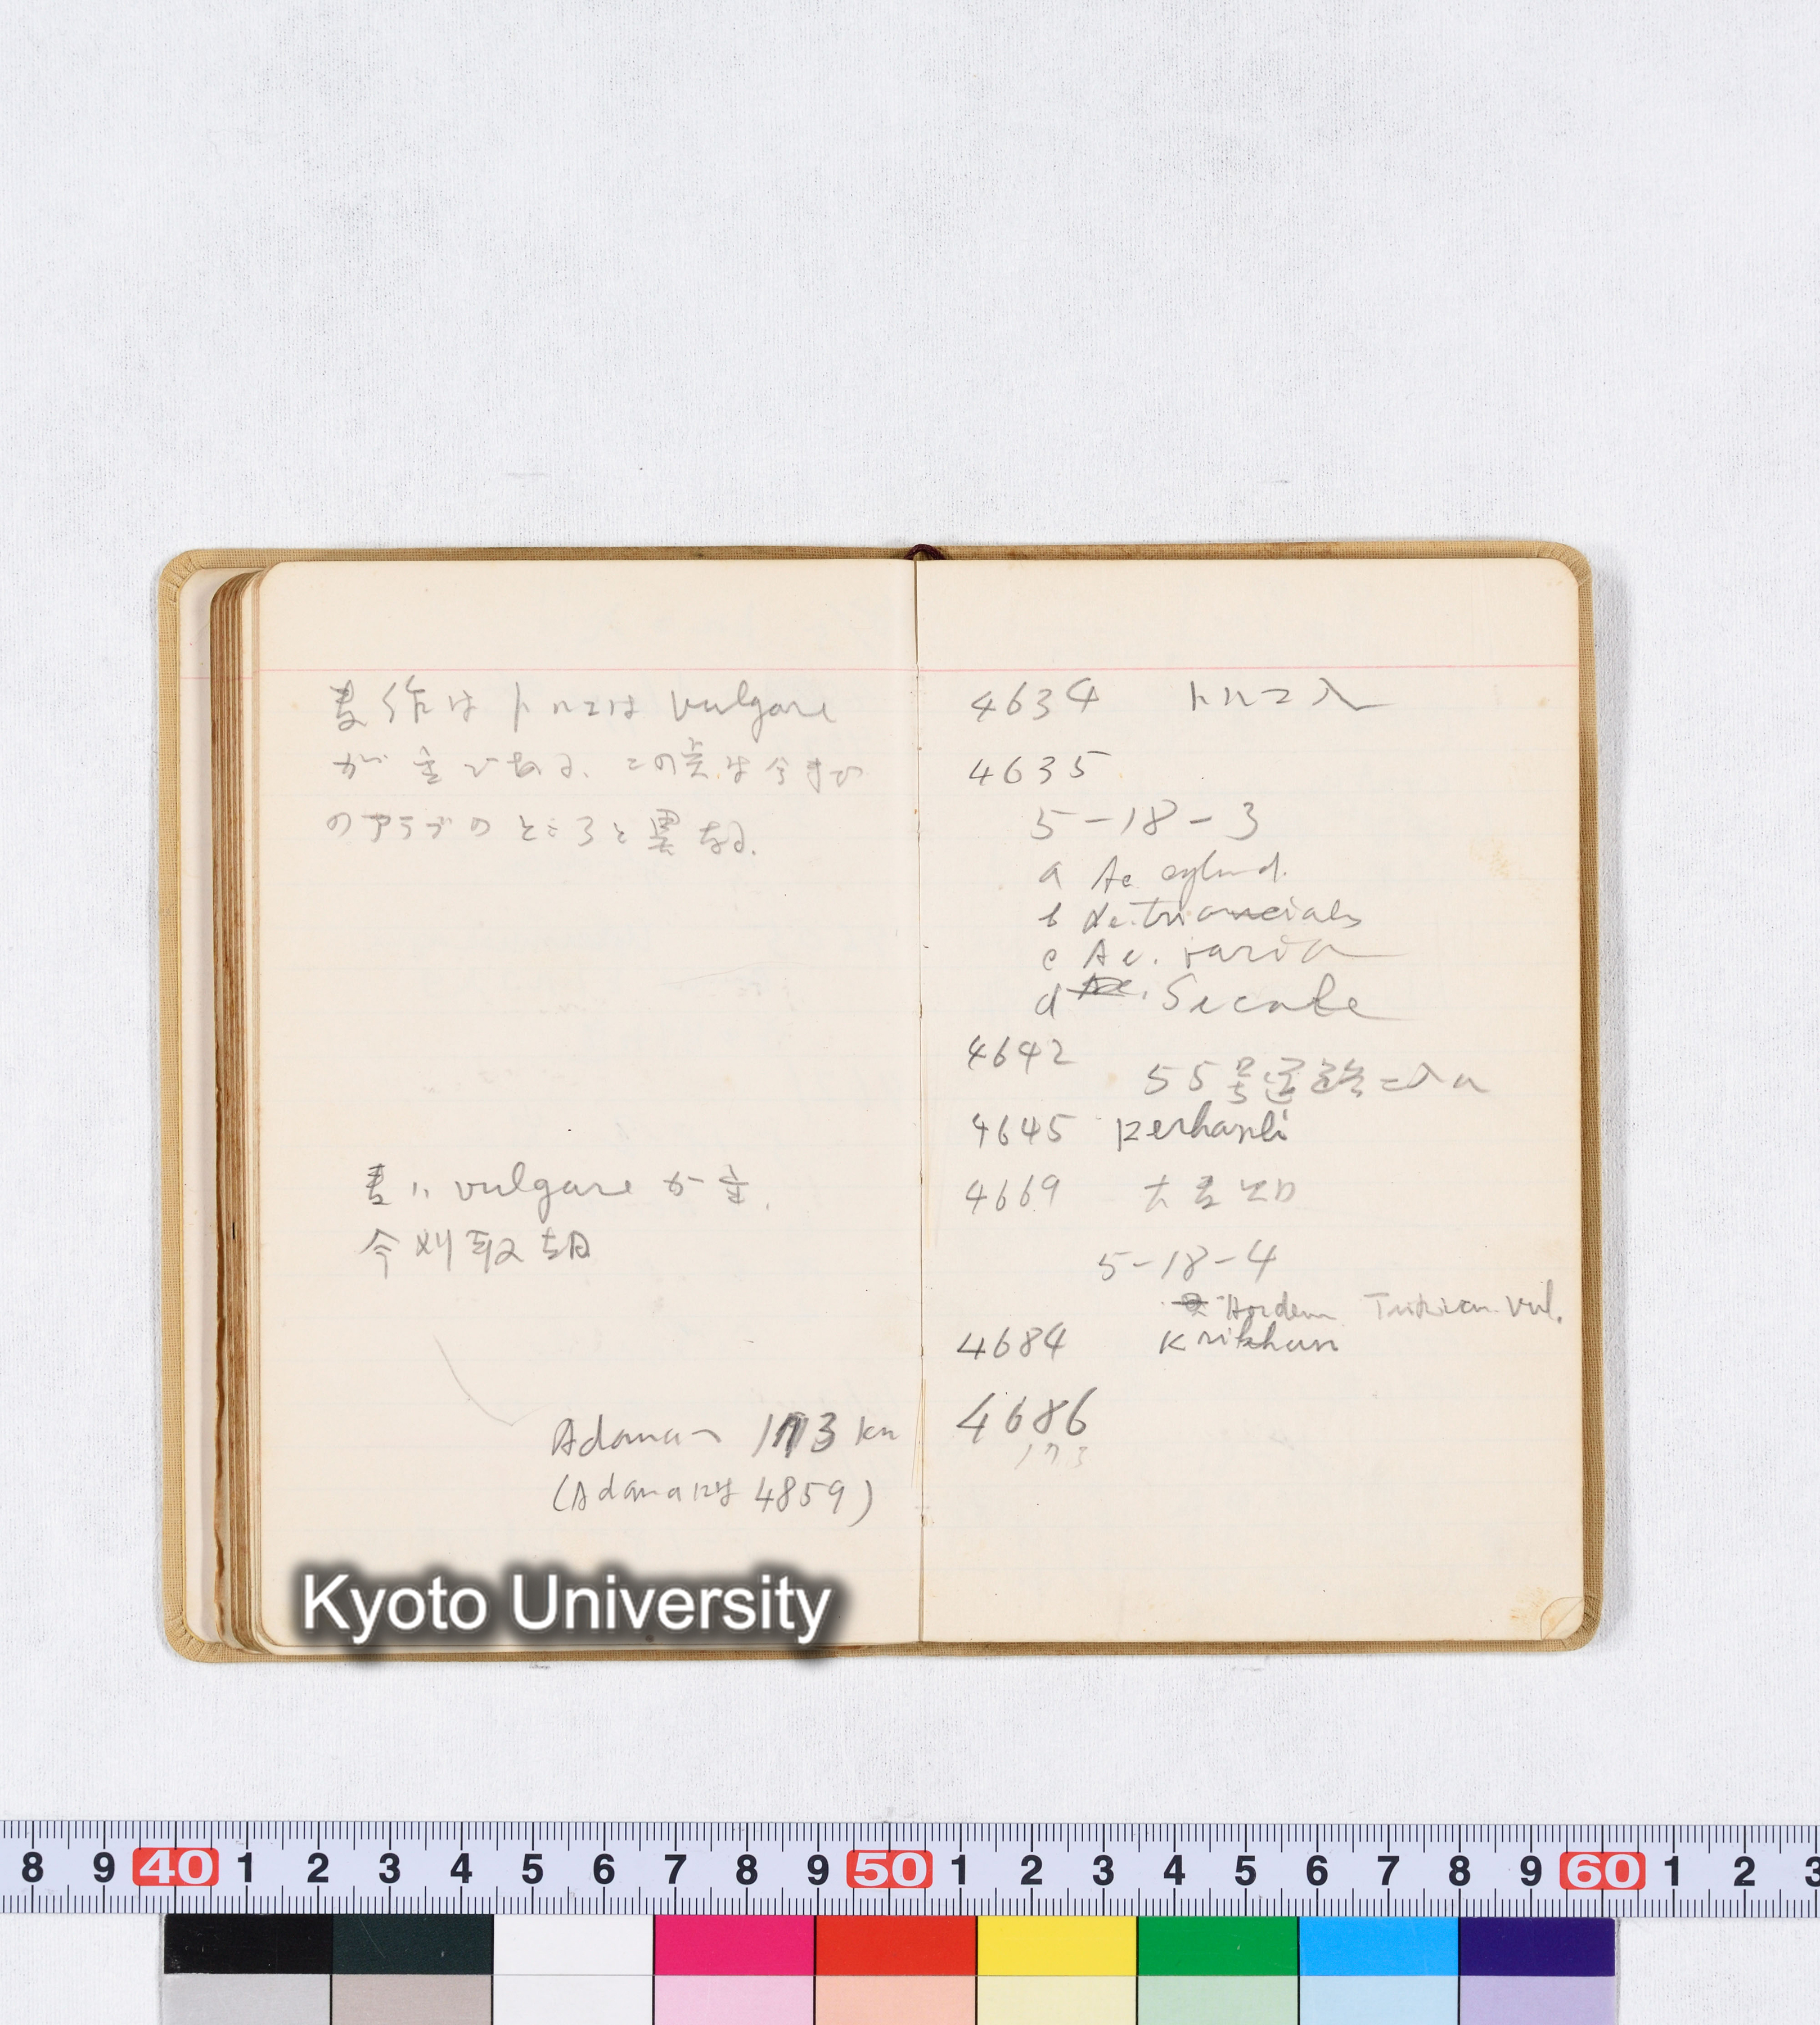 麦作はトルコは vulgare
が主である、この点は今まで
のアラブのところと異なる.
麦ハ vulgare が主.
今刈取期
Adanaへ 173 km
(Adanaには 4859)
4634 トルコ入
4635
5-18-3
a Ae cylind.
b Ae. triuncialis
c Ae.
d Ae. Secale
4642
55号道路ニ入ル
4645
4669 大麦
5-18-4
Hordeum Triticum. vul.
4684 Krikhan
4686
173
Kyoto University
8 9 40 1 2 3 4 5 6 7 8 9 50 1 2 3 4 5 6 7 8 9 60 1 2 3